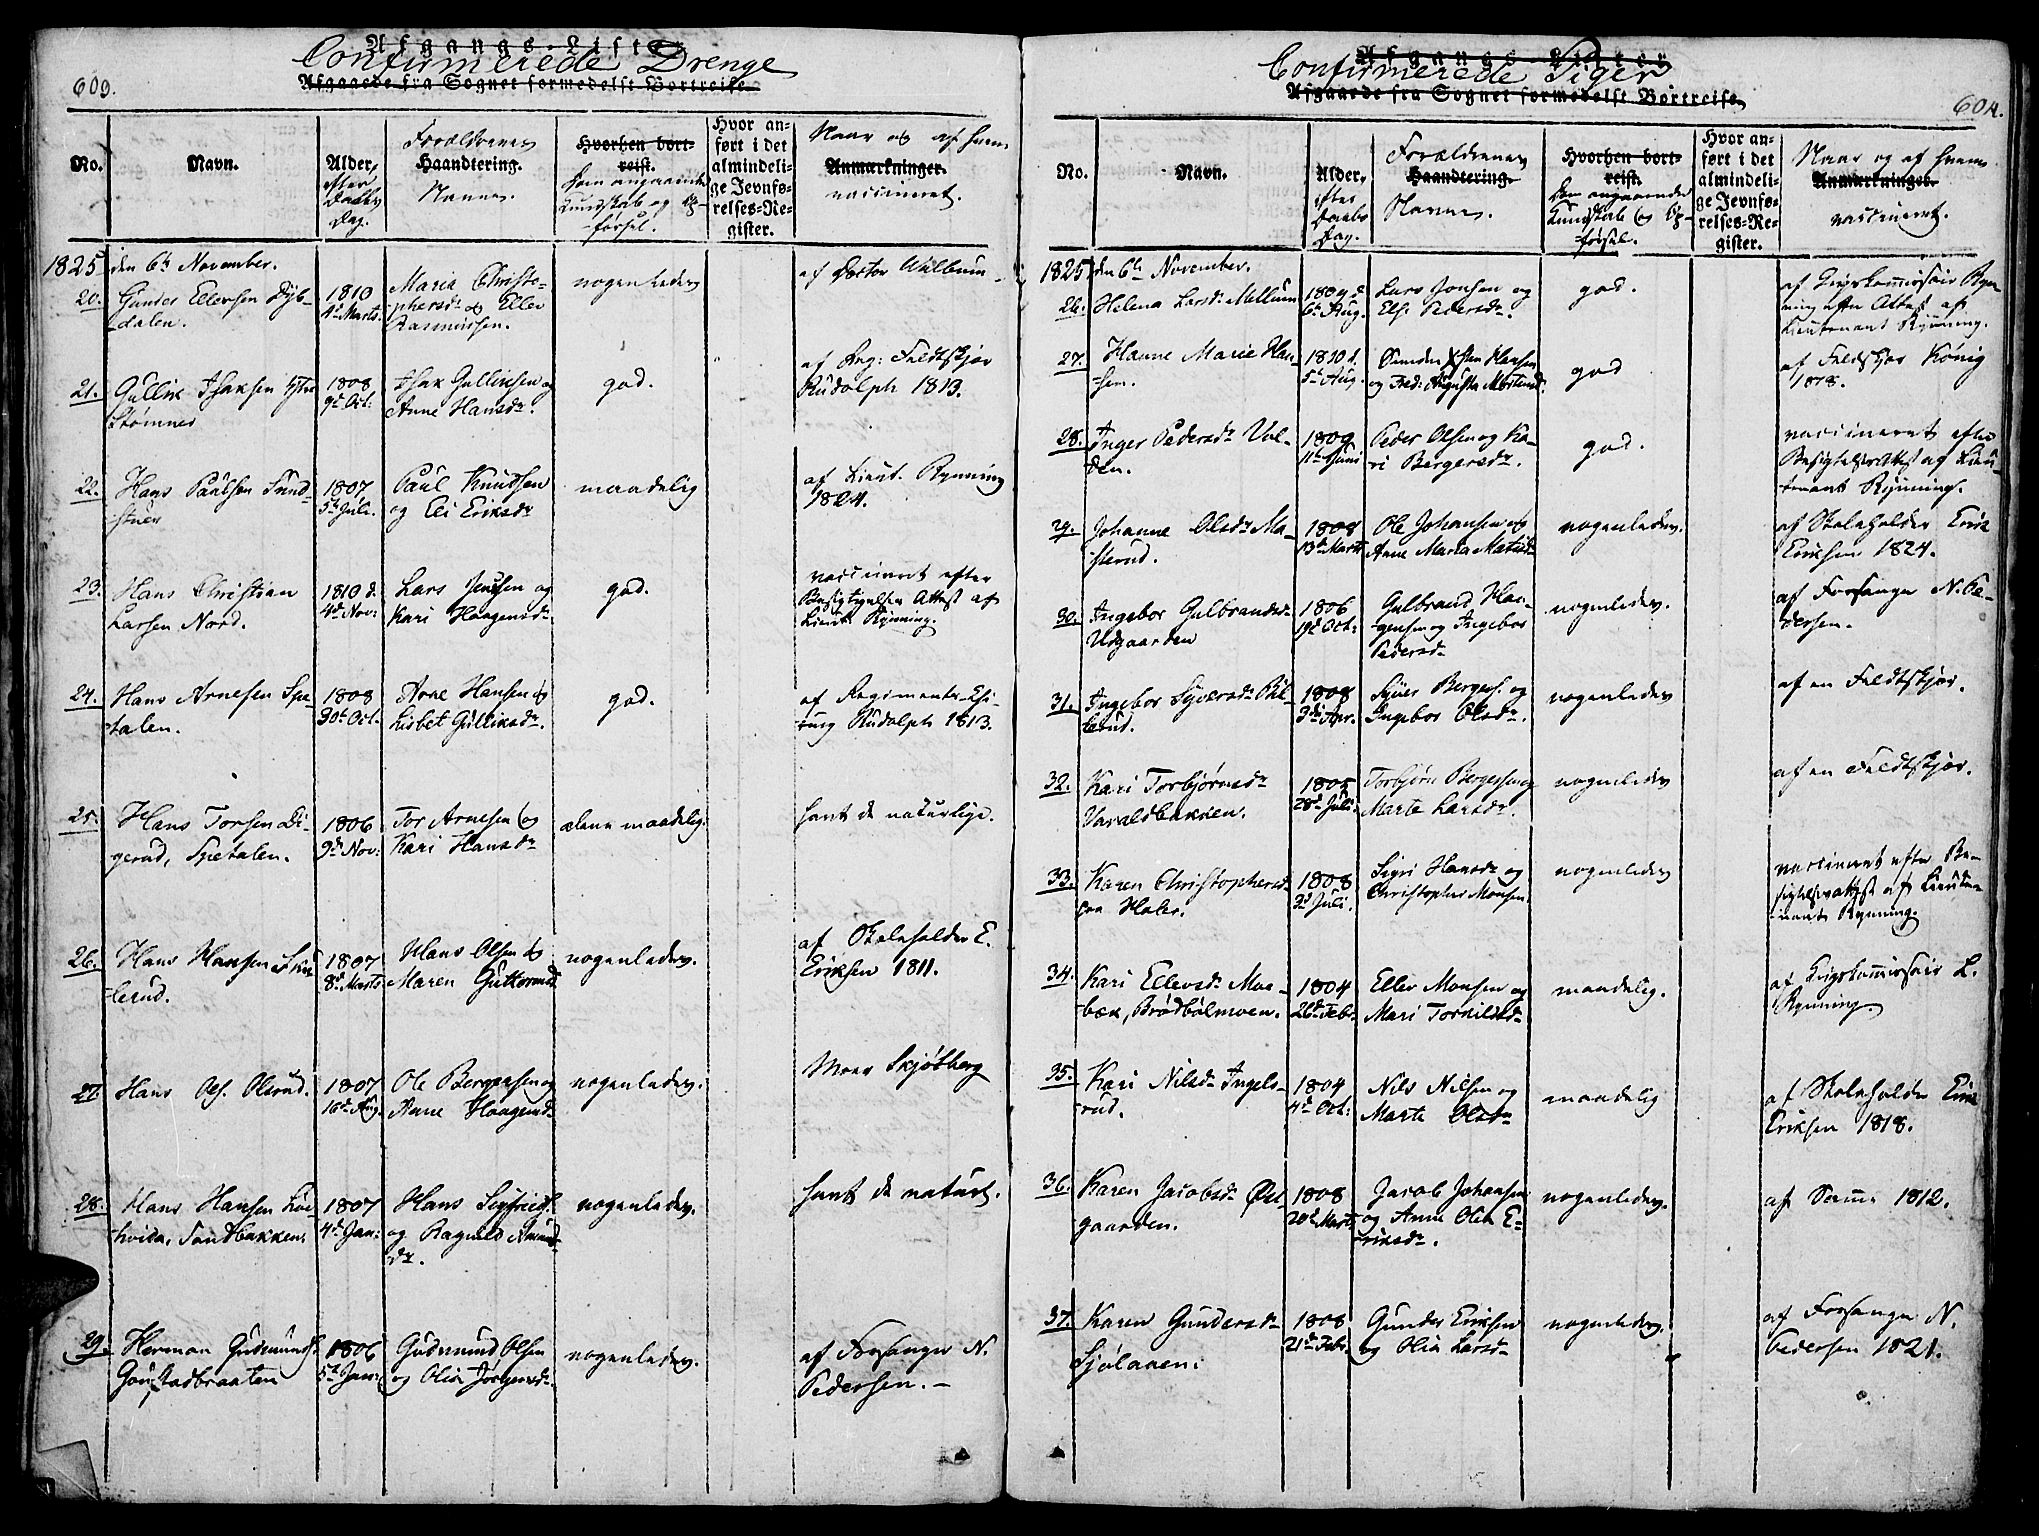 603.
Afgangs-Liste
Confirmerede Drenge
Afgaaede fra Sognet formedelst Bortreise.
No.
Navn.
Alder,
efter
Daabs
Dag.
Forældrenes
Haandtering.
Navne.
Hvorhen bort-
reist.
Dom angaaende
Kundskab og Op-
førsel.
Hvor an-
ført i det
almindeli-
ge Jevnfø-
relses-Re-
gister.
Naar og af hvem
Anmærkninger.
vaccineret.
1825 den 6te November.
20. Gunder Ellevsen Dyb-
dalen.
1810
4de Marts.
Maria Christo-
phersdr og Ellev
Rasmussen.
nogenledes
af Doctor
21. Gullik Isaksen
Strømner
1808
9de Oct:
Isak Gulliksen og
Anne Hansdr.
god.
af Feldtskjær
Rudolph 1813.
22. Hans Paulsen Sund-
stuen
1807
5te Juli.
Paul Knudsen
og Eli Eriksdr
maadelig
af Lieut. Rynning
1824.
23. Hans Christian
Larsen Nord.
1810 d.
4de Nov:
Lars Jensen og
Kari Haagensdr.
god.
vaccineret efter
Besigtigelses Attest af
Lieut. Rynning.
24. Hans Arnesen Spe-
talen.
1808
30te Oct.
Arne Hansen og
Lisbet Gulliksdr.
god.
af Regiments-Chi-
rurg Rudolph 1813.
25. Hans Torsen Di-
gerud, Spetalen.
1806
9de Nov:
Tor Arnesen og
Kari Hansdr
alene maadelig.
havt de naturlige.
26. Hans Hansen
lerud.
1807
8de Marts
Hans Olsen og
Maren Guttormsd
nogenledes.
af Skoleholder E.
Eriksen 1811.
27. Hans Ols. Olerud.
1807
16de Aug.
Ole Bergersen og
Anne Haagensdr
nogenledes.
Moer Skjøtberg
28. Hans Hansen
Sandbakken.
1807
4de Jan:
Hans Sigfrieds.
og Ragnild Amund-
dr.
nogenledes.
havt de naturl.
29. Herman Gudmunds.
Gaustadbraaten
1806
5te Jan:
Gudmund Olsen
og Olia Jørgensdr.
nogenledes.
af Forsanger N.
Pedersen.-
604.
Afgangs-Lister
Confirmerede Piger
Afgaaede fra Sognet formedelst Bortreise,
No.
Navn.
Alder,
efter
Daabs
Dag.
Forældrenes
Haandtering.
Navne.
Hvorhen bort-
reist.
Dom angaaende
Kundskab og Op-
førsel.
Hvor an-
ført i det
almindeli-
ge Jevnfø-
relses-Re-
gister.
Naar og af hvem
Anmærkninger.
vaccineret.
1825 den 6te November.
26. Helena Larsdr Mellum
1809 d.
6te Aug.
Lars Jonsen og
Else Pedersdr.
god.
af Krigskommissair Ryn-
ning efter Attest af
Lieutenant Rynning.
27. Hanne Marie Han-
sen.
1810 d.
5te Aug.
Hansen
og Fred: Augusta
god
af Feldtskjær König
28. Inger Pedersdr Vol-
den.
1809
11te Juni
Peder Olsen og Ka-
ri Bergersdr.
god.
vaccineret efter
Besigtelsesattest af Lieu-
tenant Rynning.
29. Johanne Olsdr Ma-
sterud.
1808
13de Marts
Ole Johansen og
Anne Maria Matisdr
nogenledes.
af Skoleholder Erik
Eriksen 1824.
30. Ingebor Gulbrandsdr
Udgaarden
1806
19de Oct:
Gulbrand Haa-
gensen og Ingebor
Pedersdr
nogenledes.
af Forsanger N. Pe-
dersen.
31. Ingebor Syversdr
lerud.
1808
3die Apr.
Syver Bergers. og
Ingebor Olsdr.
nogenledes
af en Feldtskjær.
32. Kari Torbjørnsdr
Varaldbakken.
28de Juli.
Torbjørn Bergersen og
Marte Larsdr.
nogenledes
af en Feldtskjær.
33. Karen Christophersdr
fra Holer.
1808
3d Juli.
Sigri Hansdr og
Christopher Monsen.
nogenledes
vaccineret efter Be-
sigtelsesattest af Lieute-
nant Rynning.
34. Kari Ellevsdr Moe-
bæk, Brødbølmoen.
1804
26de Febr.
Ellev Monsen og
Mari Torkildsdr
maadelig.
af Krigskommissair L.
Rynning.
35. Kari Nilsdr Ingels-
rud.
1804
4de Oct:
Nils Nilsen og
Marte Olsdr
maadelig
af Skoleholder Erik
Eriksen 1818.
36. Karen Jacobsdr Øst-
gaarden.
1808
20de Marts
Jacob Johansen
og Anne Olia E-
riksdr.
nogenledes.
af Samme 1812.
37. Karen Gundersdr
Sjølaaen.
1808
21de Febr.
Gunder Eriksen
og Olia Larsdr
nogenledes.
af Forsanger N.
Pedersen 1821.